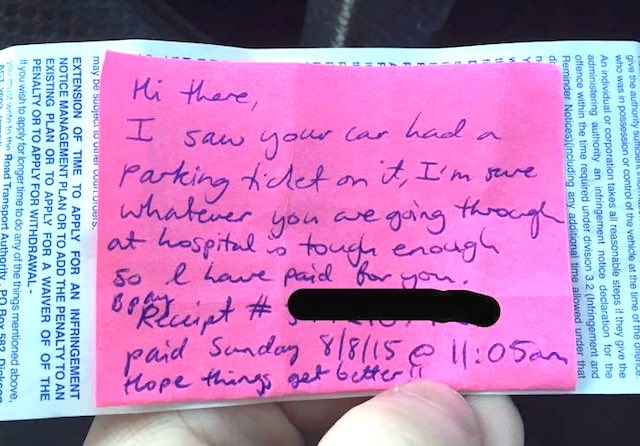 Hi there,
I saw your car had a
parking ticket on it, I'm sure
whatever you are going through
at hospital is tough enough
so I have paid for you.
Bpay
Receipt #
paid Sunday 8/8/15 @ 11:05am
Hope things get better!!
give the authority sufficient
who was in possession or control of the vehicle at the time of the offence
An individual or corporation takes all reasonable steps if they give the
administering authority an infringement notice declaration for the
offence within the time required under division 3.2 (Infringement and
Reminder Notices)(including any additional time allowed under that
may be subject to other court orders.
EXTENSION OF TIME TO APPLY FOR AN INFRINGEMENT
NOTICE MANAGEMENT PLAN OR TO ADD THE PENALTY TO AN
EXISTING PLAN OR TO APPLY FOR A WAIVER OF OF THE
PENALTY OR TO APPLY FOR WITHDRAWAL -
If you wish to apply for longer time to do any of the things mentioned above,
you must write to the Road Transport Authority, PO Box 582, Dickson